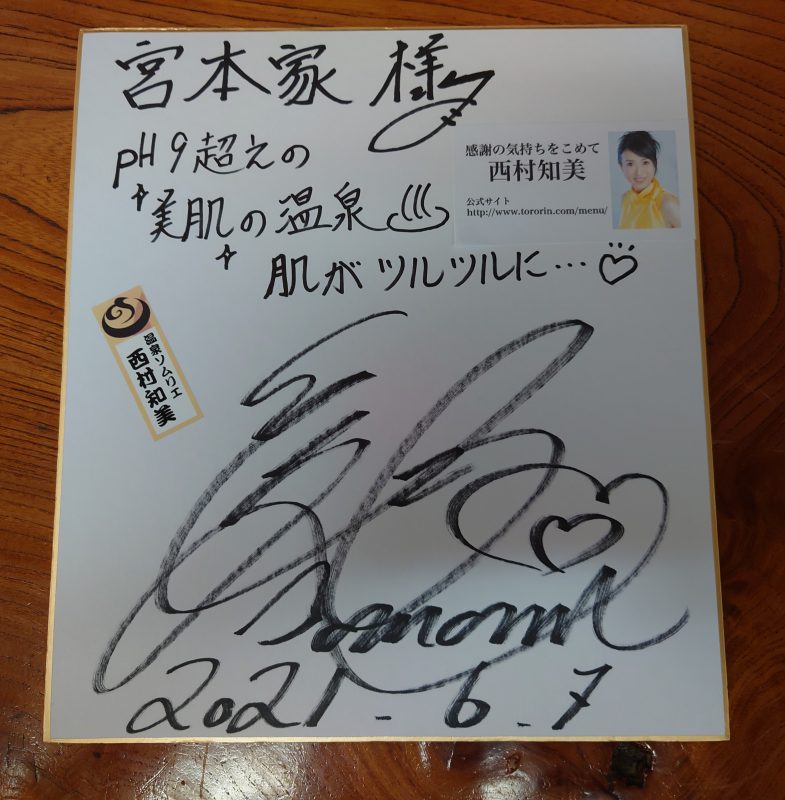 宮本家 様
pH9超えの
美肌の温泉♨
肌がツルツルに…♡
感謝の気持ちをこめて
西村知美
公式サイト
http://www.tororin.com/menu/
温泉ソムリエ
西村知美
Tomomi
2021-6-7